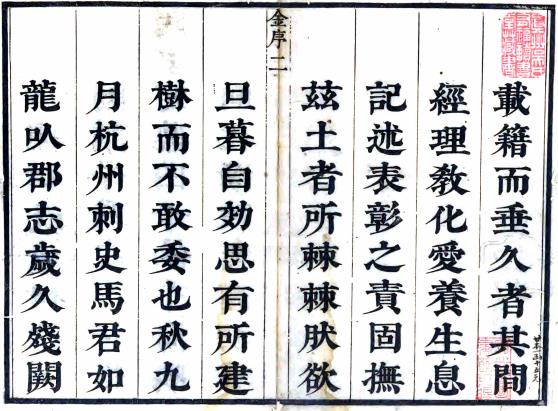 載籍而垂久者其間
經理敎化愛養生息
記述表彰之責固撫
玆土者所棘棘肰欲
金序二
旦暮自効思有所建
樹而不敢委也秋九
月杭州刺史馬君如
龍㕥郡志歲久殘闕